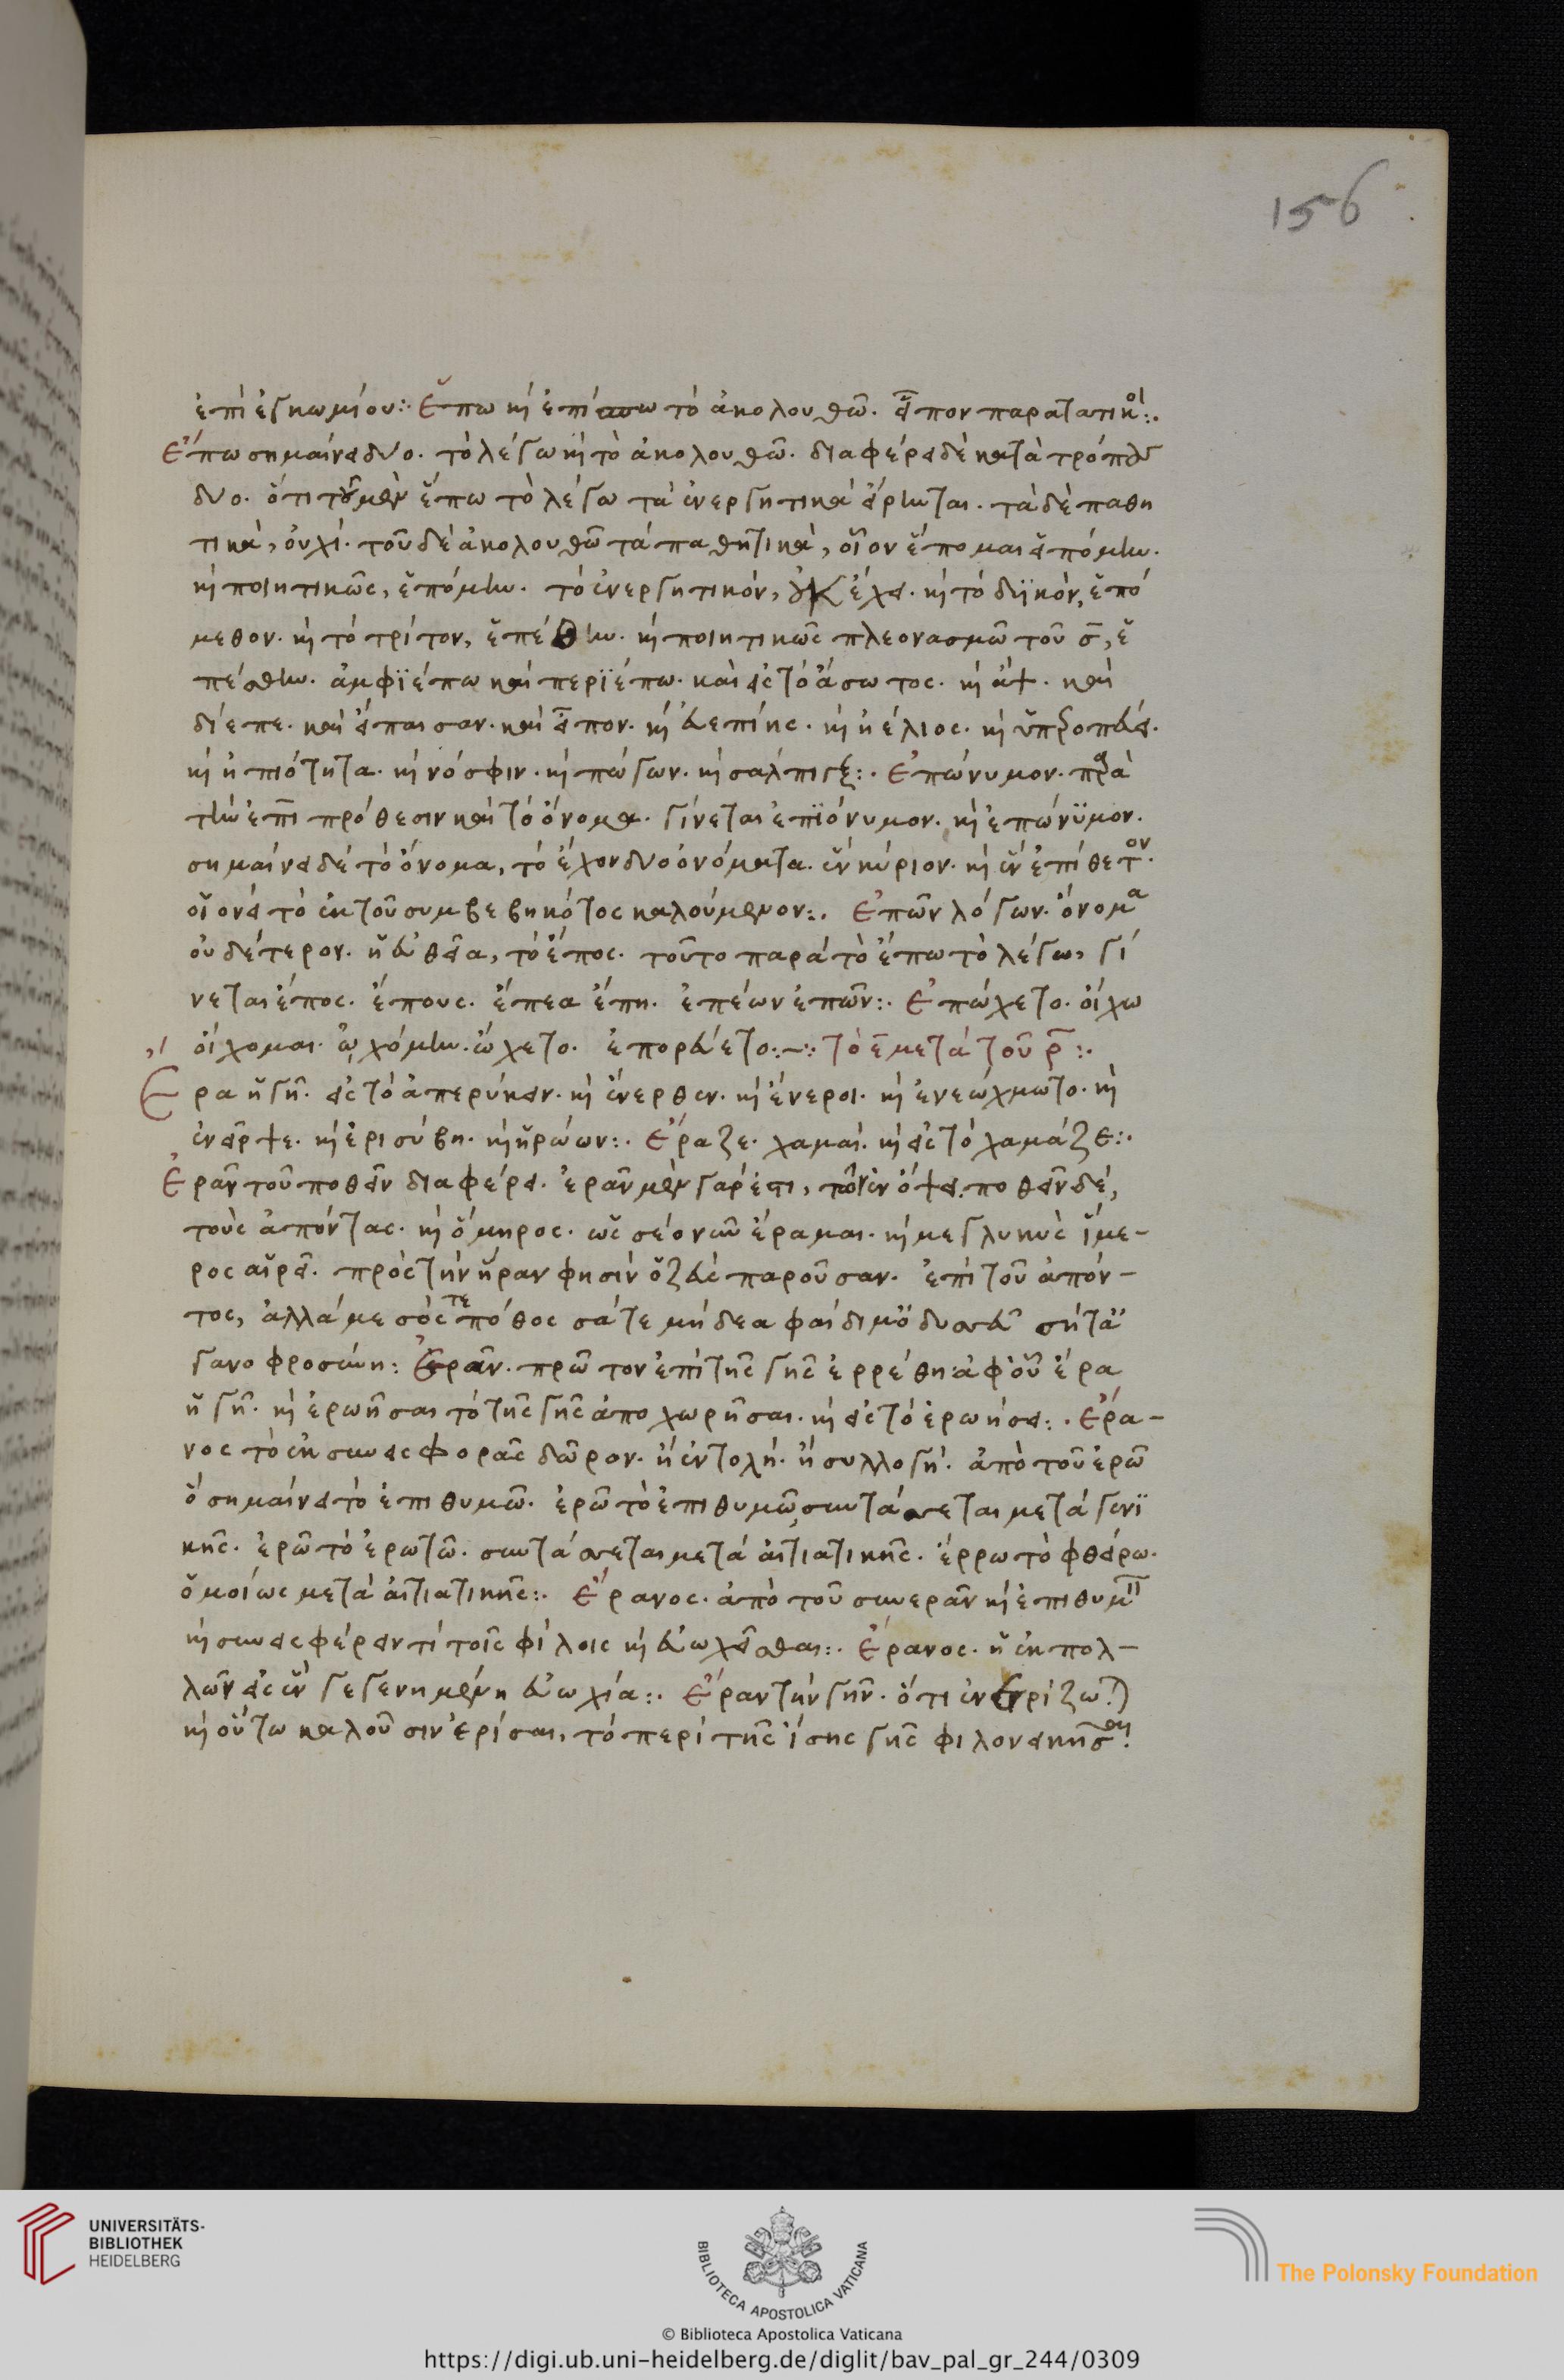 156
ἐπὶ ἐγκωμίου:· Ἕπω κὶ ἐπί τὸ ἀκολουθῶ. εἷπον παρατατικοί:.
Ἔπω σημαίνει δύο. τὸ λέγω κὶ τὸ ἀκολουθῶ. διαφέρει δὲ κατὰ τρόπους
δύο. ὅτι τοῦ μὲν ἔπω τὸ λέγω τὰ ἐνεργητικὰ εἴρηται. τὰ δὲ παθη
τικὰ, οὐχί. τοῦ δὲ ἀκολουθῶ τὰ παθητικὰ, οἷον ἕπομαι εἱπόμην.
κὶ ποιητικῶς, ἑπόμην. τὸ ἐνεργητικὸν, οὐκ ἔχει. κὶ τὸ δϋϊκὸν, ἑπό
μεθον. κὶ τὸ τρίτον, ἑπέθην. κὶ ποιητικῶς πλεονασμῶ τοῦ σ, ἑ
πέσθην. ἀμφϊέπω καὶ περϊέπω. καὶ εἰς τὸ ἄσωτος. κὶ ἄψ. καὶ
δίεπε. καὶ ἕπαισαν. καὶ εἷπον. κὶ εὐεπίης. κὶ ἠέλιος. κὶ
κὶ ἠπιότητα. κὶ νόσφιν. κὶ πώγων. κὶ σάλπιγξ:. Ἐπώνυμον. παρὰ
τὴν ἐπι πρόθεσιν καὶ τὸ ὄνομα. γίνεται ἐπϊόνυμον. κὶ ἐπώνϋμον.
σημαίνει δὲ τὸ ὄνομα, τὸ ἔχον δύο ὀνόματα. ἓν κύριον. κὶ ἓν ἐπίθετον.
οἱονεὶ τὸ ἐκ τοῦ συμβεβηκότος καλούμενον:. Ἐπῶν λόγων. ὄνομα
οὐδέτερον. ἡ εὐθεῖα, τὸ ἔπος. τοῦτο παρὰ τὸ ἔπω τὸ λέγω, γί
νεται ἔπος. ἔπους. ἔπεα ἔπη. ἐπέων ἐπῶν:. Ἐπώχετο. οἴχω
οἴχομαι. ᾠχόμην. ᾤχετο. ἐπορεύετο:~: τὸ ε μετὰ τοῦ ρ:.
Ἔρα ἡ γῆ. εἰς τὸ ἀπερύκειν. κὶ ἔνερθεν. κὶ ἔνεροι. κὶ ἐνεώχμωτο. κὶ
ἐνεῖρψε. κὶ ἐρισύβη. κὶ ἡρώων:. Ἔραζε. χαμαὶ. κὶ εἰς τὸ χαμάζε:.
Ἐρᾶν τοῦ ποθεῖν διαφέρει. ἐρᾶν μὲν γάρ ἐστι, τῶν ἐν ὄψει. ποθεῖν δὲ,
τοὺς ἀπόντας. κὶ ὅμηρος. ὡς σέο νῦν ἔραμαι. κὶ με γλυκὺς ἵμε-
ρος αἱρεῖ. πρὸς τὴν ἥραν φησὶν ὁ ζεὺς παροῦσαν. ἐπὶ τοῦ ἀπόν-
τος, ἀλλά με σός τε πόθος σά τε μήδεα φαίδιμ' ὀδυσσεῦ σή τ' ἀ
γανοφροσύνη: Ἐρᾶν. πρῶτον ἐπὶ τῆς γῆς ἐρρέθη· ἀφ' οὗ ἔρα
ἡ γῆ. κὶ ἐρωῆσαι τὸ τῆς γῆς ἀποχωρῆσαι. κὶ εἰς τὸ ἐρωήσει:. Ἔρα-
νος τὸ ἐκ συνεισφορᾶς δῶρον. ἢ ἐντολὴ. ἢ συλλογή. ἀπὸ τοῦ ἐρῶ
ὃ σημαίνει τὸ ἐπιθυμῶ. ἐρῶ τὸ ἐπιθυμῶ, συντάσσεται μετὰ γενϊ
κῆς. ἐρῶ τὸ ἐρωτῶ. συντάσσεται μετὰ αἰτιατικῆς. ἔρρω τὸ φθείρω.
ὁμοίως μετὰ αἰτιατικῆς:. Ἔρανος. ἀπὸ τοῦ συνερᾶν κὶ ἐπιθυμεῖν
κὶ συνεισφέρειν τὶ τοῖς φίλοις κὶ εὐωχεῖσθαι:. Ἔρανος. ἡ ἐκ πολ-
λῶν εἰς ἓν γεγενημένη εὐωχία:. Ἔραν τὴν γῆν. ὅτι ἐνερίζω
κὶ οὕτω καλοῦσιν ἐρίσαι, τὸ περὶ τῆς ἴσης γῆς φιλονεικῆσαι:
UNIVERSITÄTS-
BIBLIOTHEK
HEIDELBERG
BIBLIOTECA APOSTOLICA VATICANA
The Polonsky Foundation
© Biblioteca Apostolica Vaticana
https://digi.ub.uni-heidelberg.de/diglit/bav_pal_gr_244/0309